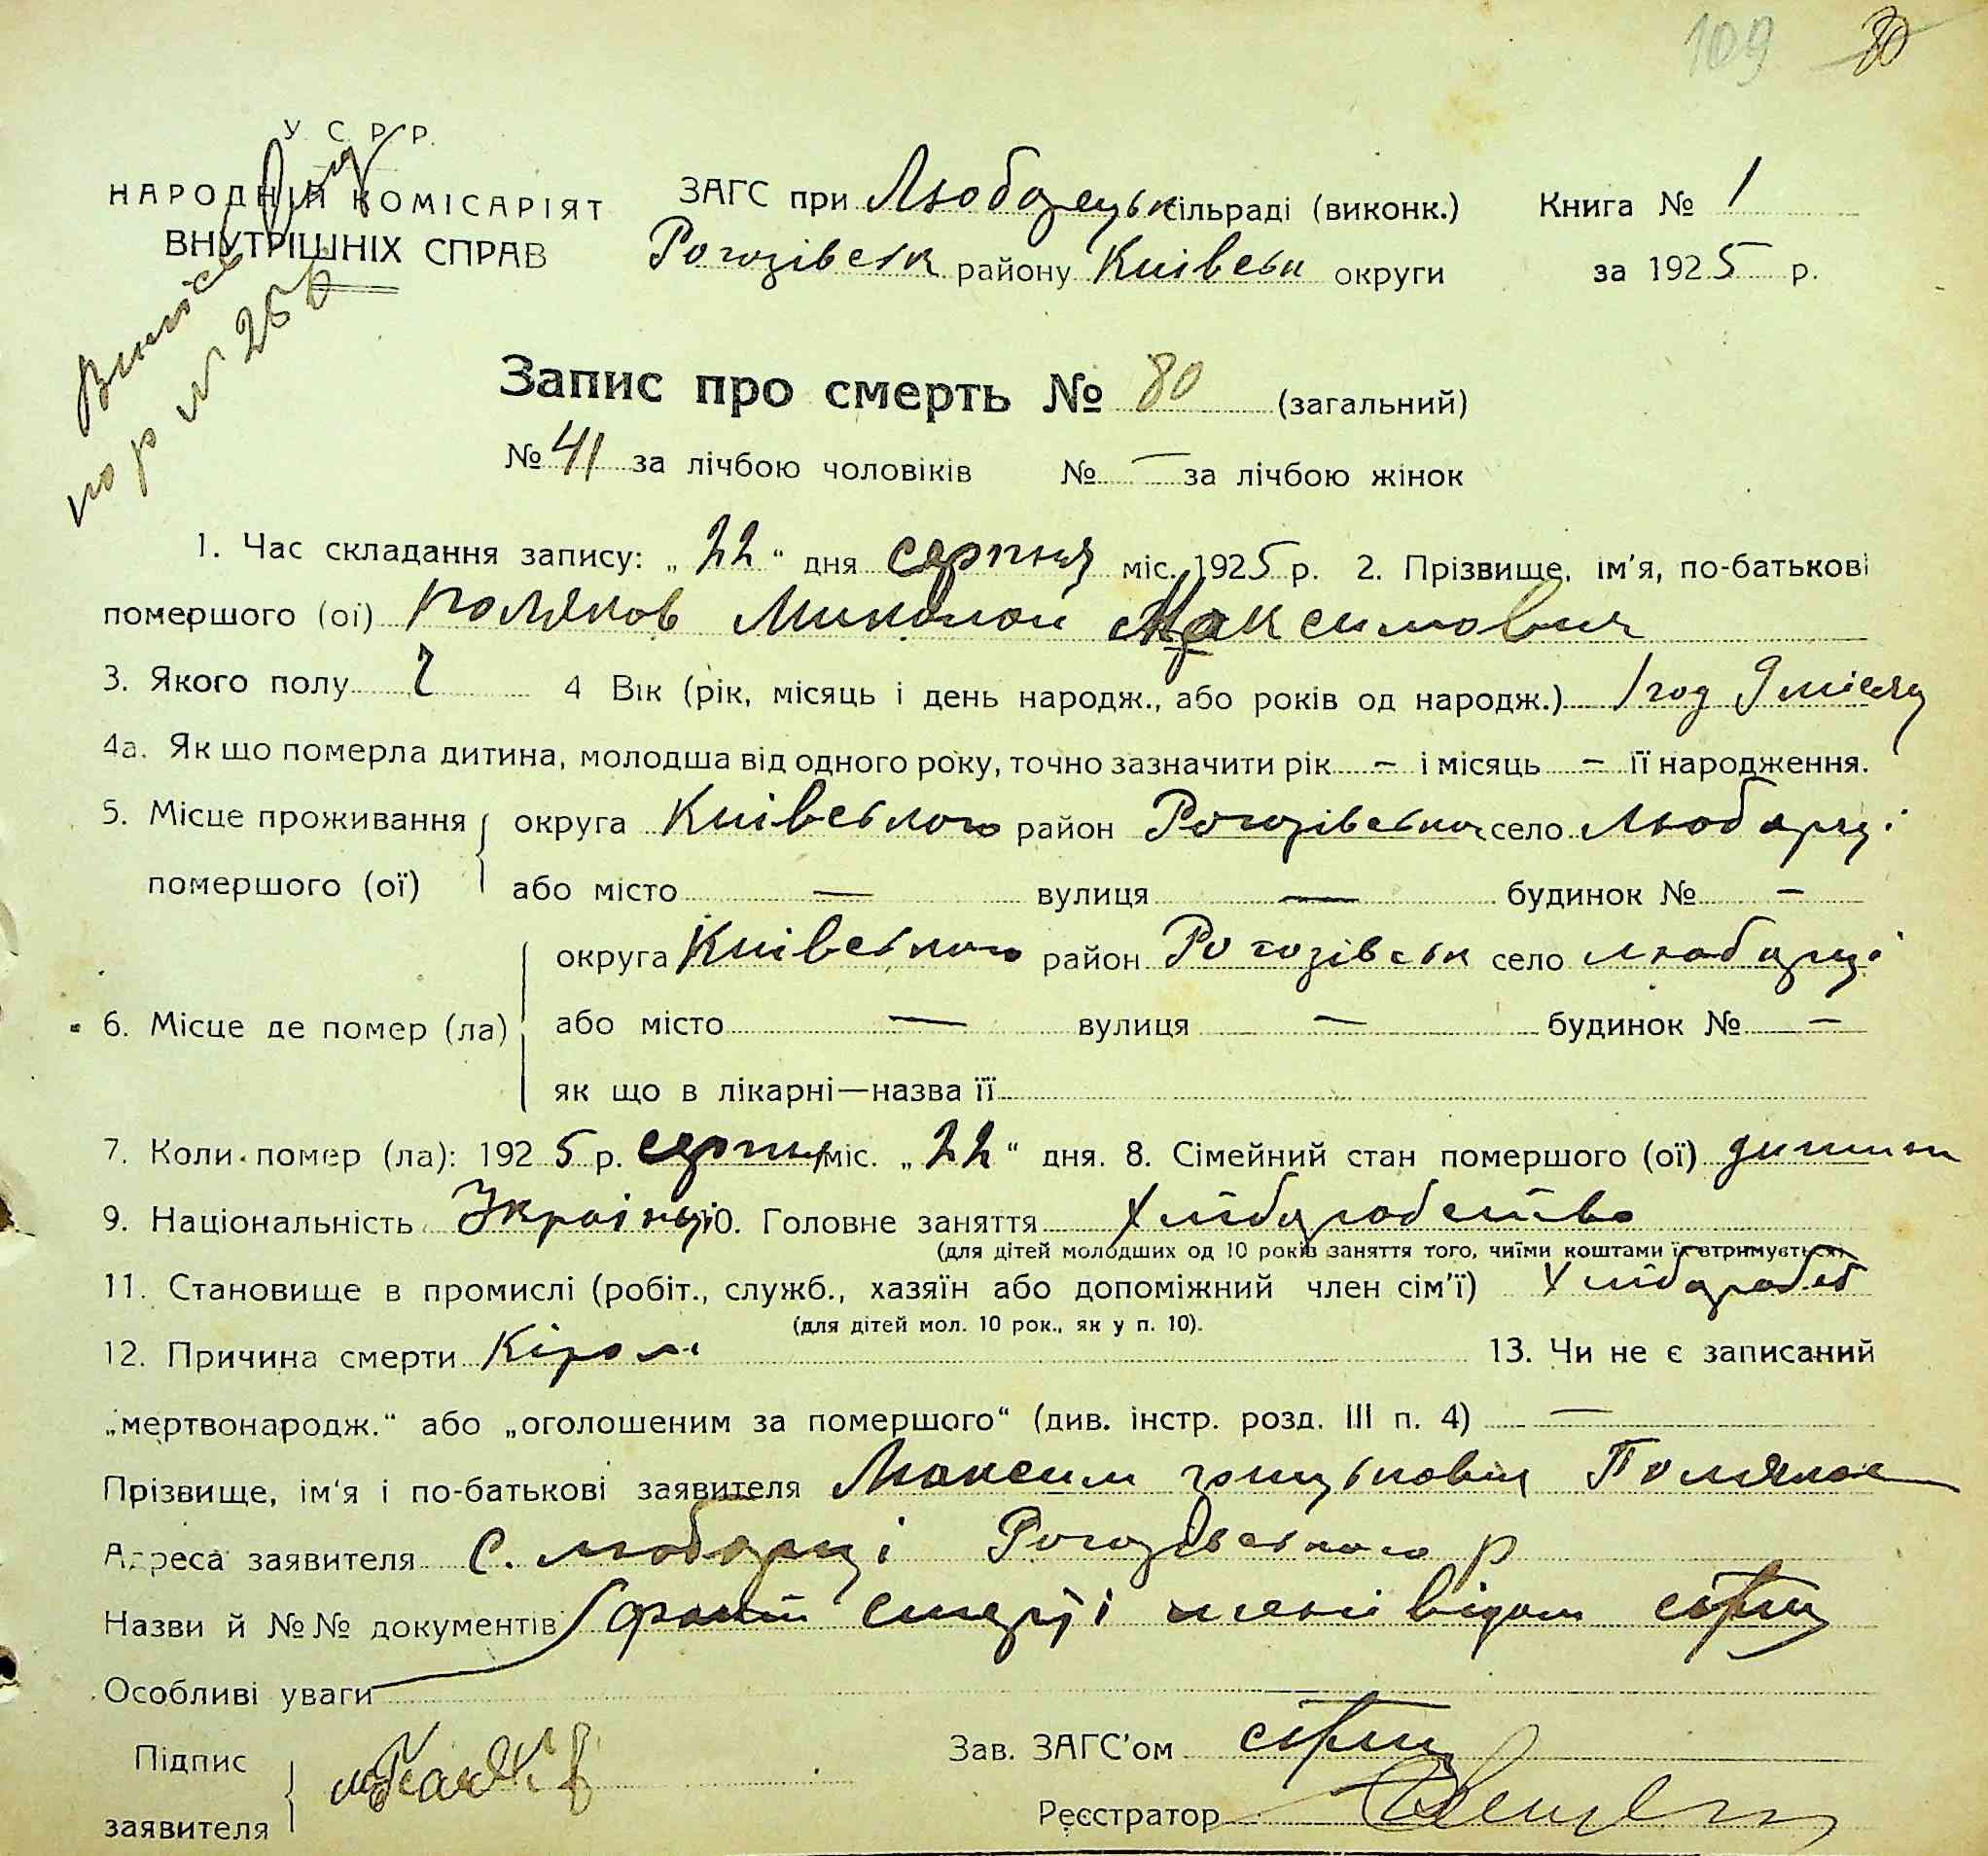 109 30
У. С. Р. Р.
НАРОДНІЙ КОМІСАРІЯТ
ВНУТРІШНІХ СПРАВ
ЗАГС при Любарецьк сільраді (виконк.) Книга № 1
Рогозівськ району Київськ округи за 1925 р.
Запис про смерть № 80 (загальний)
№ 41 за лічбою чоловіків № — за лічбою жінок
1. Час складання запису: „22“ дня серпня міс. 1925 р. 2. Прізвище, ім'я, по-батькові
помершого (ої) Поляков Миколай Максимович
3. Якого полу ч 4 Вік (рік, місяць і день народж., або років од народж.) 1 год 9 місяц
4а. Як що померла дитина, молодша від одного року, точно зазначити рік — і місяць — її народження.
5. Місце проживання округа Київського район Рогозівського село Любарці
помершого (ої) або місто — вулиця — будинок № —
округа Київського район Рогозівськ село Любарці
6. Місце де помер (ла) або місто — вулиця — будинок № —
як що в лікарні—назва її
7. Коли помер (ла): 1925 р. серпня міс. „22“ дня. 8. Сімейний стан помершого (ої) дитина
9. Національність Українці 10. Головне заняття Хлібаробство
(для дітей молодших од 10 років заняття того, чиїми коштами їх втримується)
11. Становище в промислі (робіт., служб., хазяїн або допоміжний член сім'ї) Хлібароб
(для дітей мол. 10 рок., як у п. 10).
12. Причина смерти 13. Чи не є записаний
„мертвонародж.“ або „оголошеним за помершого“ (див. інстр. розд. III п. 4) —
Прізвище, ім'я і по-батькові заявителя Максим Поляков
Адреса заявителя С. Любарці Рогозівського р
Назви й №№ документів факт смерті мені відом
Особливі уваги
Підпис
заявителя
Зав. ЗАГС'ом
Реєстратор